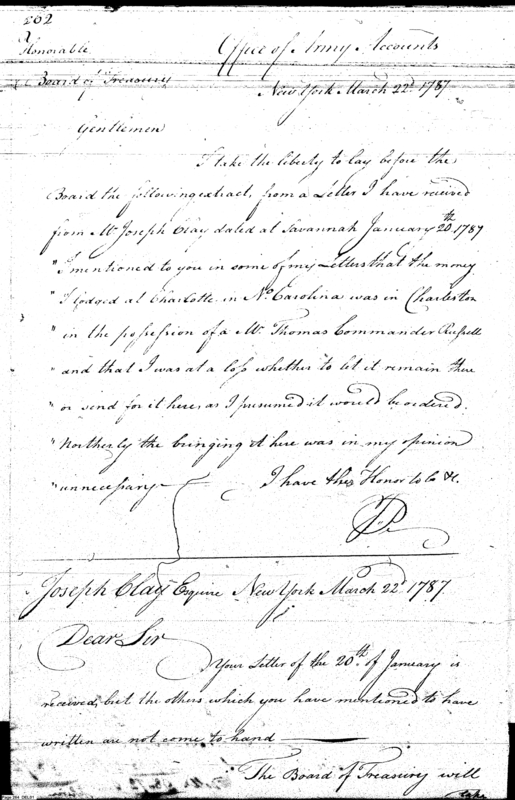 202
Honorable
Office of Army Accounts
Board of Treasury
New York March 22d. 1787
Gentlemen
I take the liberty to lay before the
Board the following extract, from a Letter I have received
from Mr. Joseph Clay dated at Savannah January 20th. 1787
"I mentioned to you in some of my Letters that the money
"I lodged at Charlotte in No. Carolina was in Charleston
"in the possession of a Mr. Thomas Commander Russell
"and that I was at a loss whether to let it remain there
"or send for it here, as I presumed it would be ordered.
"Northerly the bringing it here was in my opinion
"unnecessary
I have the Honor to be &c.
Joseph Clay Esquire New York March 22d. 1787
Dear Sir
Your Letter of the 20th. of January is
received, but the others which you have mentioned to have
written are not come to hand
The Board of Treasury will
take